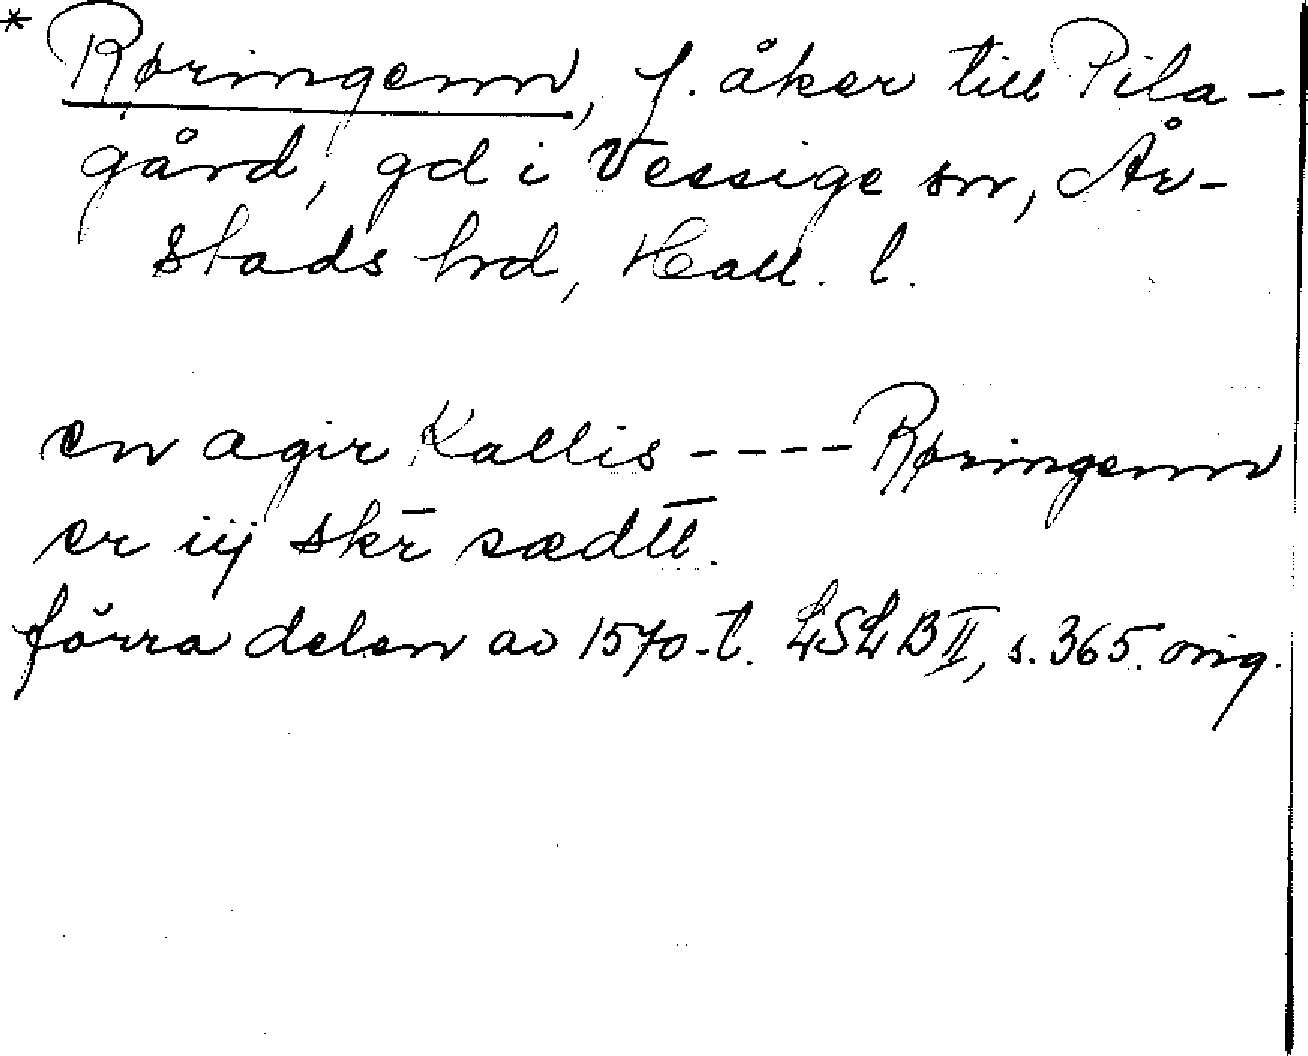 * Røringenn, f. åker till Pila-
gård, gd i Vessige sn, År-
stads hrd, Hall. l.
en agir kallis ---- Røringenn
er iij skr̄ sædt̄t̄.
förra delen av 1570-t. LSLB II, s. 365. orig.